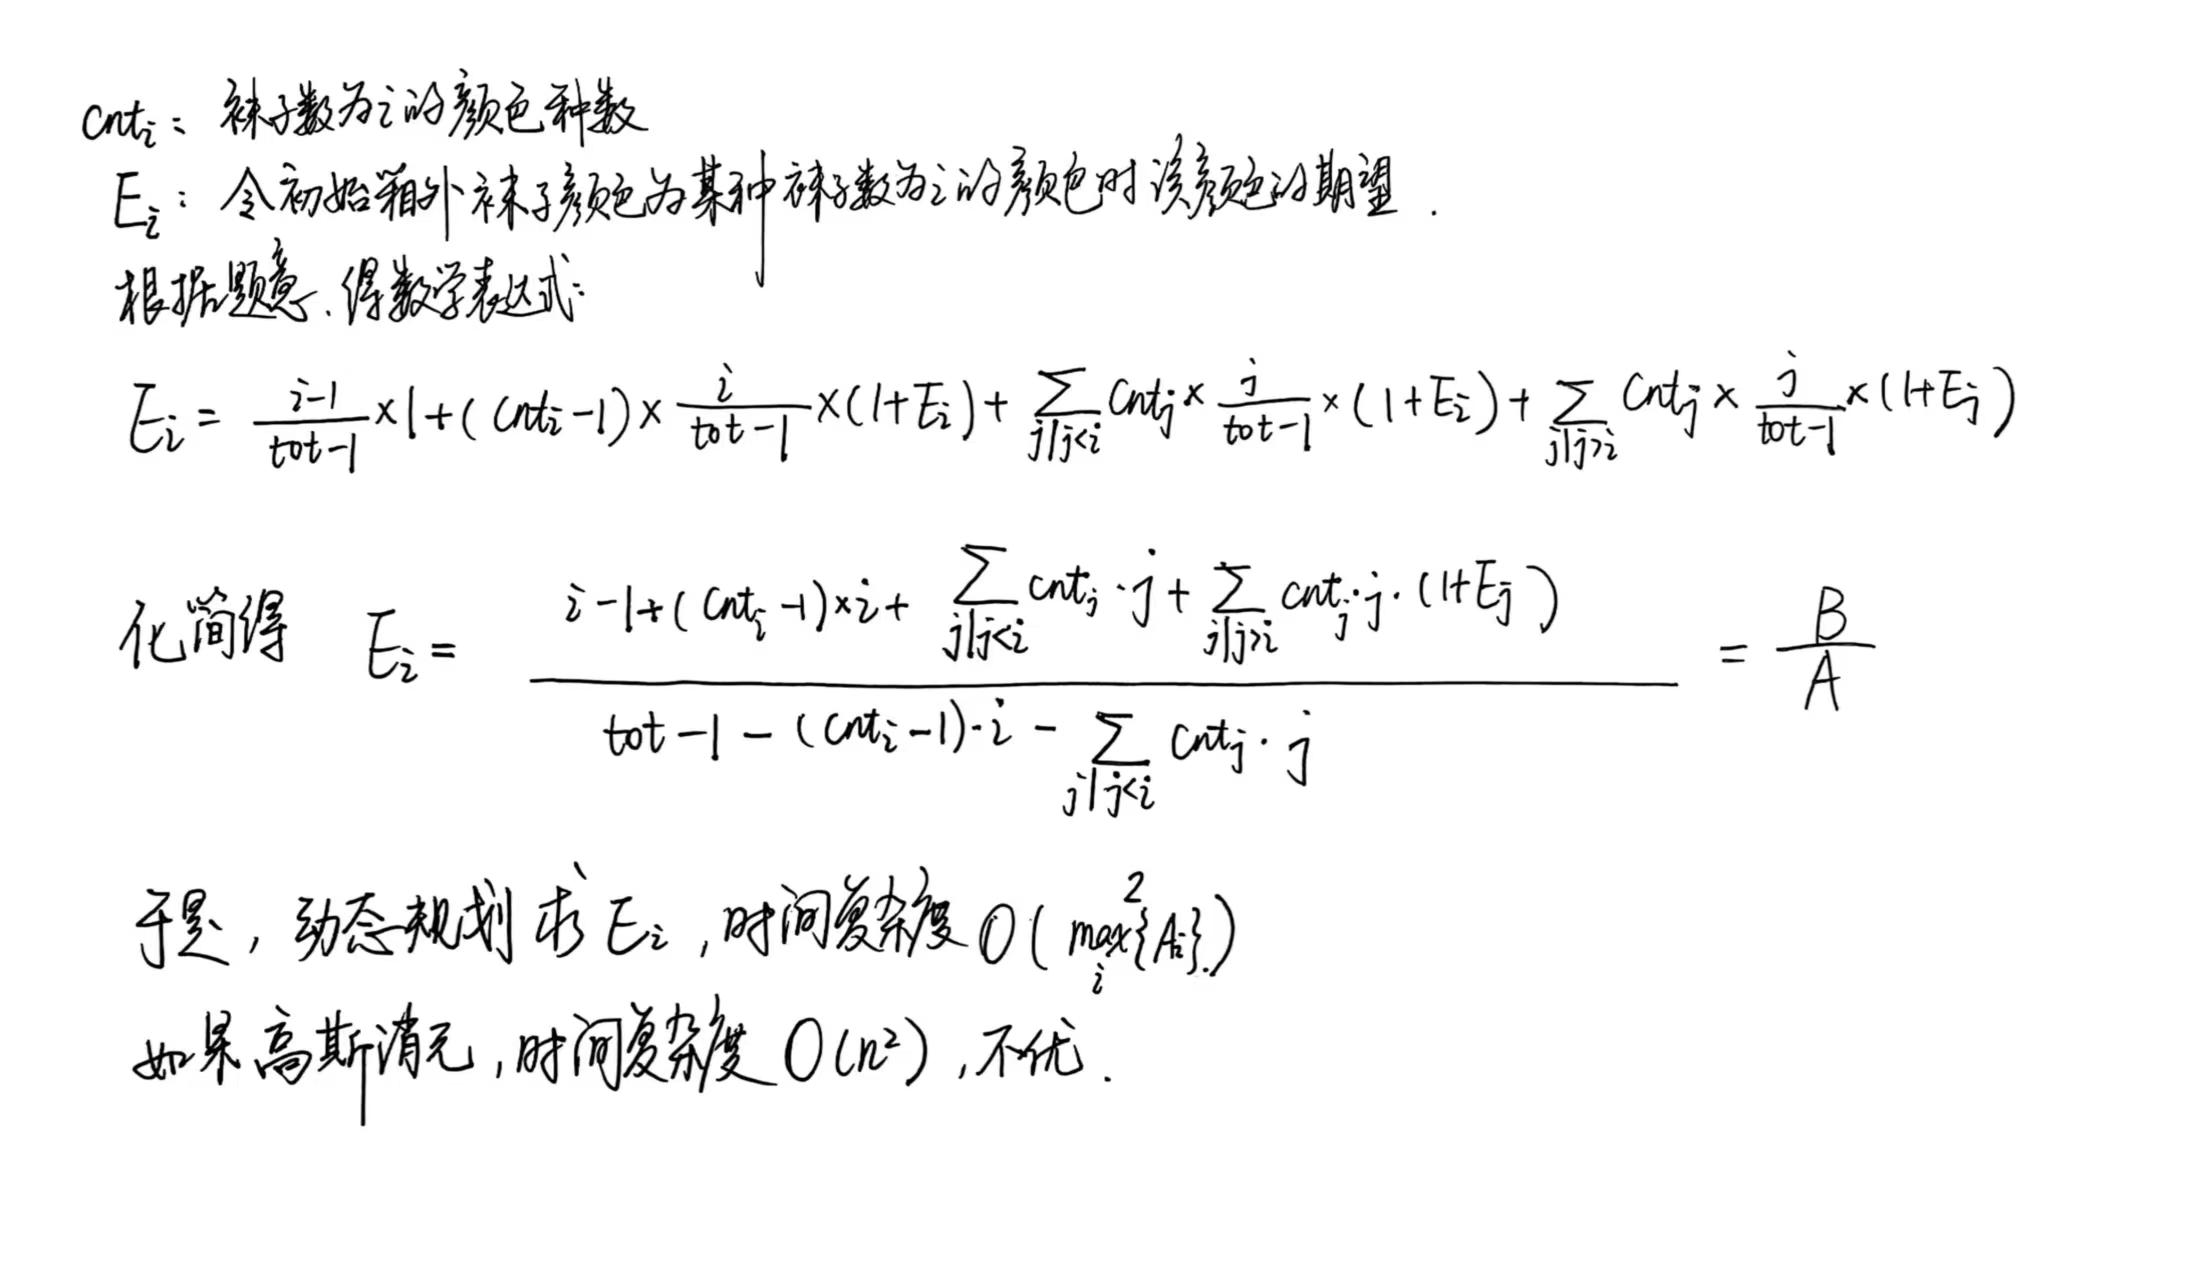 cntᵢ: 袜子数为i的颜色种数
Eᵢ: 令初始箱外袜子颜色为某种袜子数为i的颜色时该颜色的期望.
根据题意,得数学表达式:
Eᵢ = \frac{i-1}{tot-1}×1+(cntᵢ-1)×\frac{i}{tot-1}×(1+Eᵢ)+\sum_{j|j<i} cntⱼ×\frac{j}{tot-1}×(1+Eᵢ)+\sum_{j|j>i} cntⱼ×\frac{j}{tot-1}×(1+Eⱼ)
化简得 Eᵢ = \frac{i-1+(cntᵢ-1)×i+\sum_{j|j<i} cntⱼ·j+\sum_{j|j>i} cntⱼ·j·(1+Eⱼ)}{tot-1-(cntᵢ-1)·i-\sum_{j|j<i} cntⱼ·j} = \frac{B}{A}
于是,动态规划求Eᵢ,时间复杂度O(\max_i^2\{Aᵢ\}.)
如果高斯消元,时间复杂度O(n²),不优.